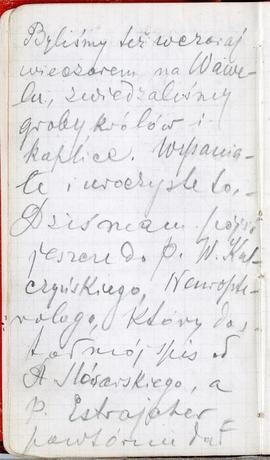 Byliśmy też wczoraj
wieczorem na Wawe-
lu, zwiedzaliśmy
groby królów i
kaplice. Wspania-
łe i uroczyste to.
Dziś mam pójść
jeszcze do p. W. Kul-
czyńskiego, Neuropte-
rologa, który dos-
tał mój spis od
A Ślósarskiego, a
P. Estrajcher
powtórnie dał